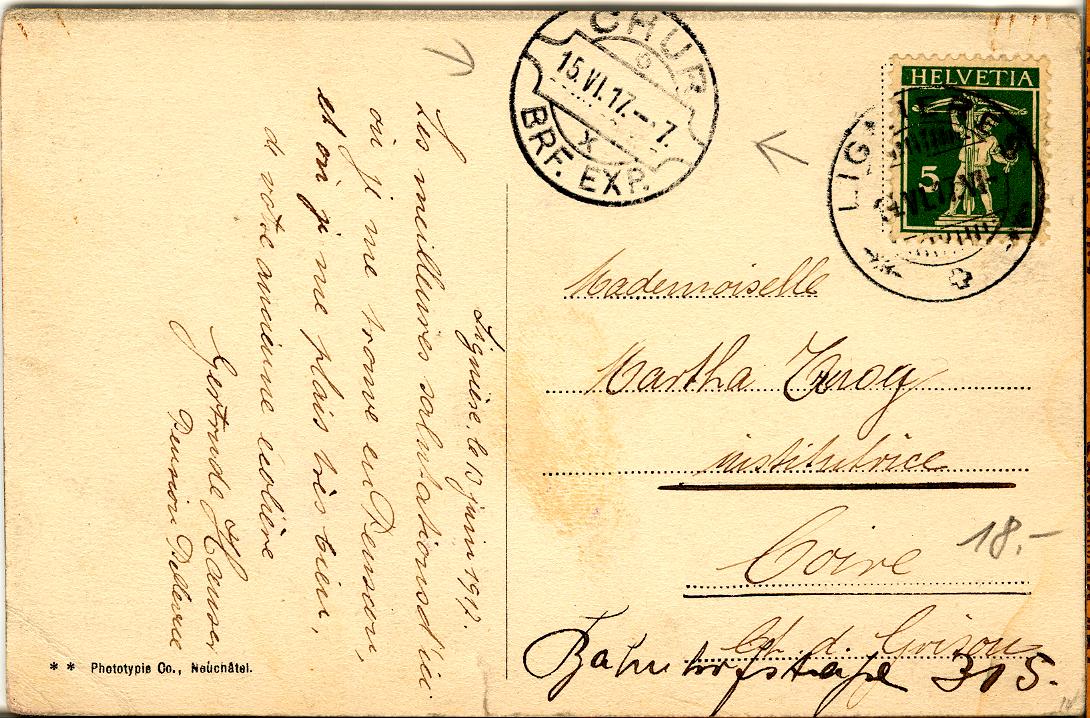 CHUR
6
15.VI.17.-7.
X
BRF. EXP.
HELVETIA
5
LIGNIÈRES
VI.17.
Lignière, le 13 juin 1917.
Les meilleures salutations d'ici
où je me trouve en Pension,
et où je me plais très bien,
d. votre ancienne écolière
Gertrude Hauser
Pension Bellevue
Mademoiselle
Martha
institutrice
Coire
18.-
Ct. d. Grison
Bahnhofstraße 315.
** Phototypie Co., Neuchâtel.